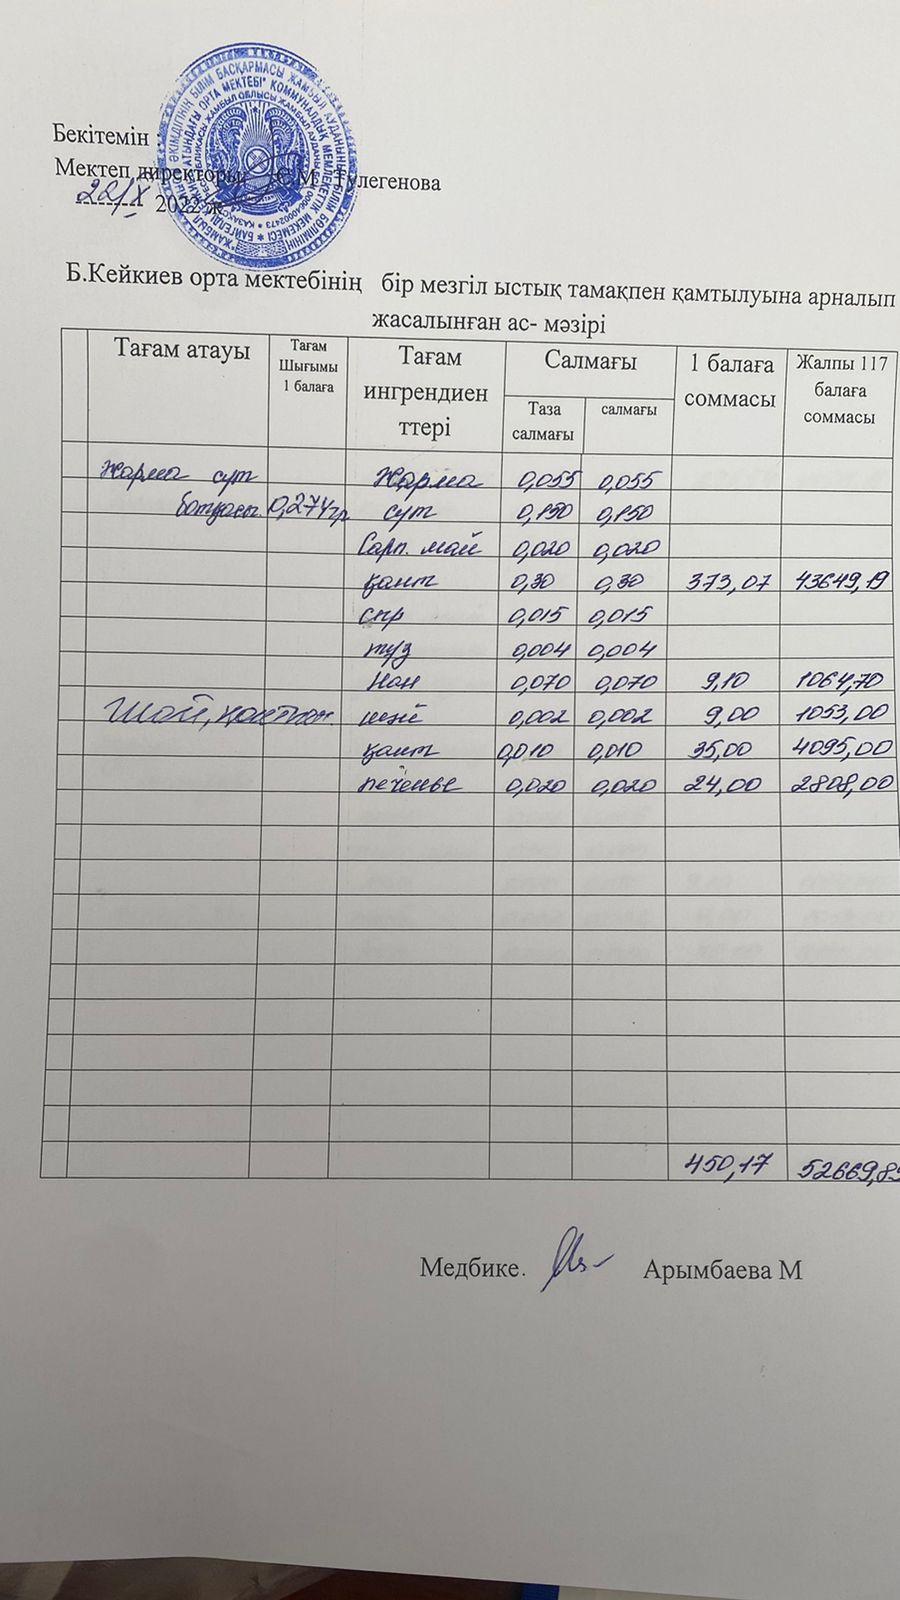 Бекітемін :
Мектеп директоры С.М. Тулегенова
22/X 2022 ж
Б.Кейкиев орта мектебінің бір мезгіл ыстық тамақпен қамтылуына арналып
жасалынған ас- мәзірі
Тағам атауы
Тағам
Шығымы
1 балаға
Тағам
ингрендиен
ттері
Салмағы
Таза
салмағы
салмағы
1 балаға
соммасы
Жалпы 117
балаға
соммасы
Жарма сүт Жарма 0,055 0,055
ботқасы. 0,274гр сүт 0,150 0,150
Сарп. май 0,020 0,020
қант 0,30 0,30 373,07 43649,19
спр 0,015 0,015
тұз 0,004 0,004
нан 0,070 0,070 9,10 1064,70
Шай, шай 0,002 0,002 9,00 1053,00
қант 0,010 0,010 35,00 4095,00
печенье 0,020 0,020 24,00 2808,00
450,17 52669,89
Медбике. Арымбаева М